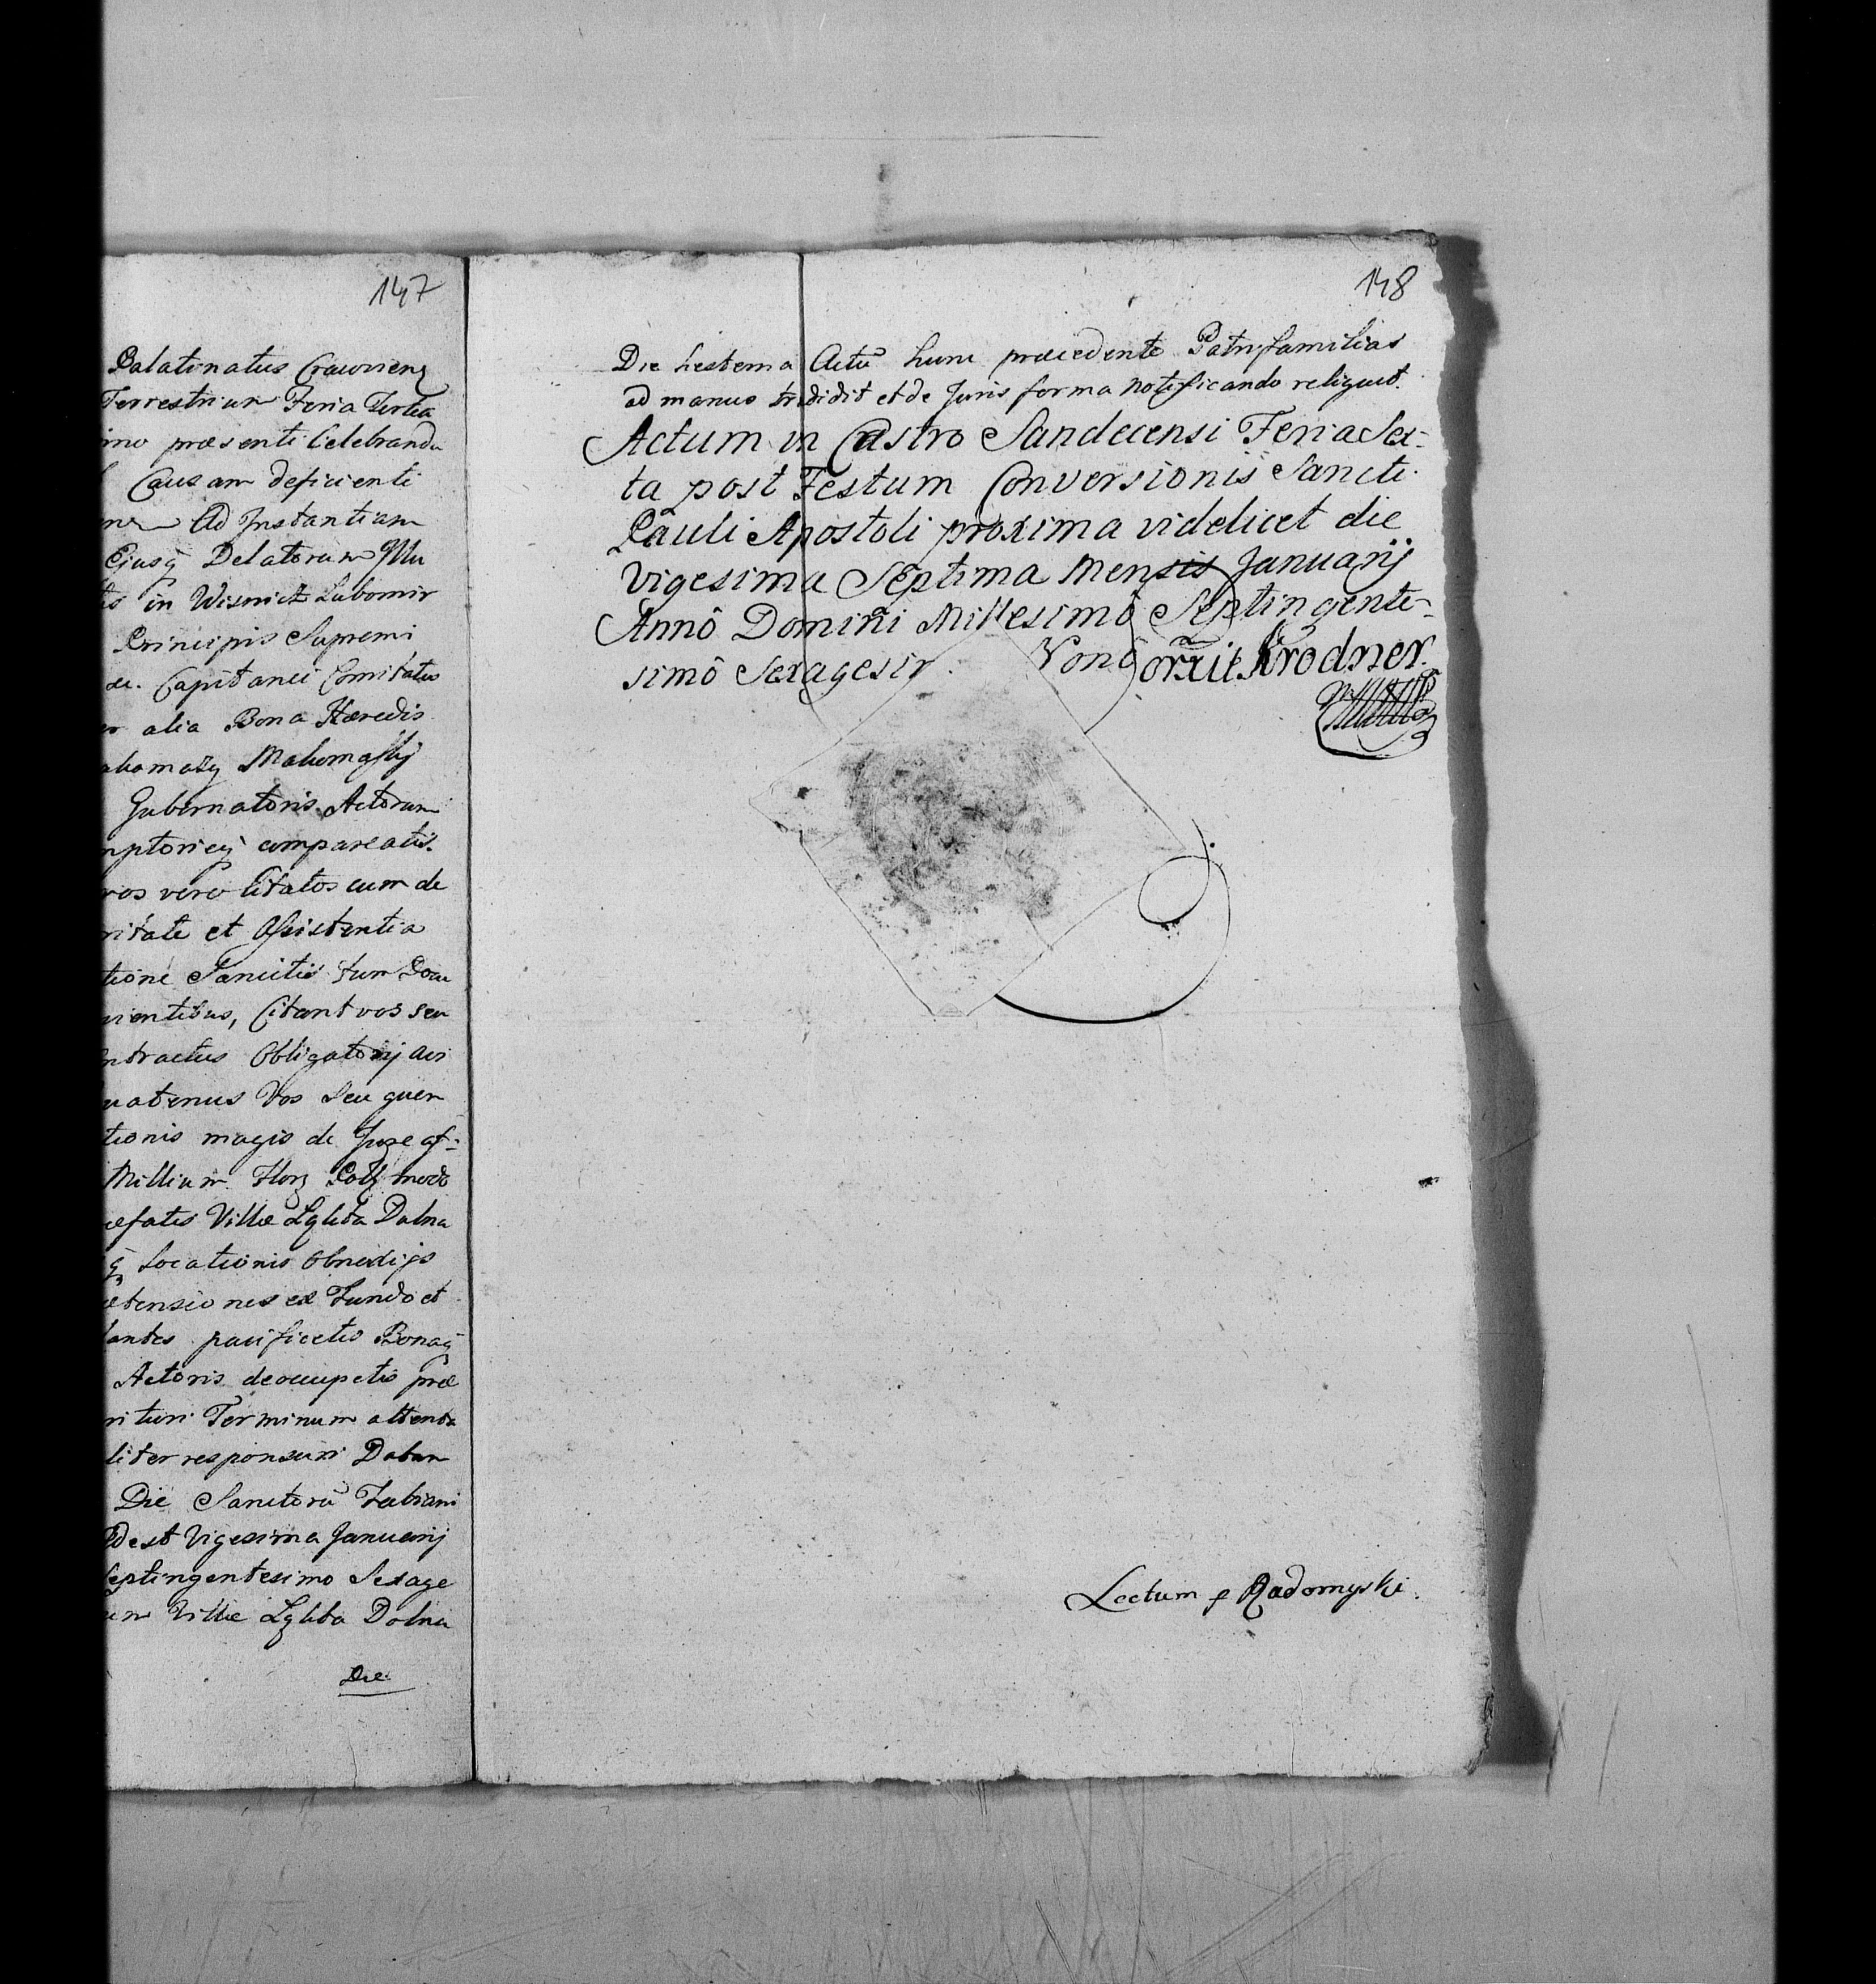 147
Palatinatus Cracovieng
Terrestrium Feria Tertia
præsenti Celebranda
Causam deficienti
Ad Instantiam
Ejusq Delatorum Illu
in Wisnicz Lubomir
Principis Supremi
Capitanei Comitatus
alia Bona Hæredis
Gubernatoris Actorum
compareatis.
vos vero Citatos cum de
ritate et Assistentia
tione Sancitis tum Docu
vientibus, Citant vos seu
ntractus Obligatorij
uatenus Vos Seu quem
tionis magis de Jure af-
Millium Florg Pollg modo
æfatis Villæ Lgkta Dolna
Locationis Obnoxijs
ætensiones ex Fundo et
pacificetis Bonaq
Actoris deoccupetis præ
rituri Terminum attenta
liter responsuri Datum
Die Sanctorũ Fabiani
Idest Vigesima Januarij
Septingentesimo Sexage
Villæ Lgkta Dolna
Die
148
Die hesterna Actũ hunc præcedente Patrifamilias
ad manus tradidit et de Juris forma notificando reliquit.
Actum in Castro Sandecensi Feria Sex-
ta post Festum Conversionis Sancti
Pauli Apostoli proxima videlicet die
Vigesima Septima Mensis Januarij
Annô Domini Millesimô Septingente-
simô Sexagesi Krodner.
Lectum p Radomyski.